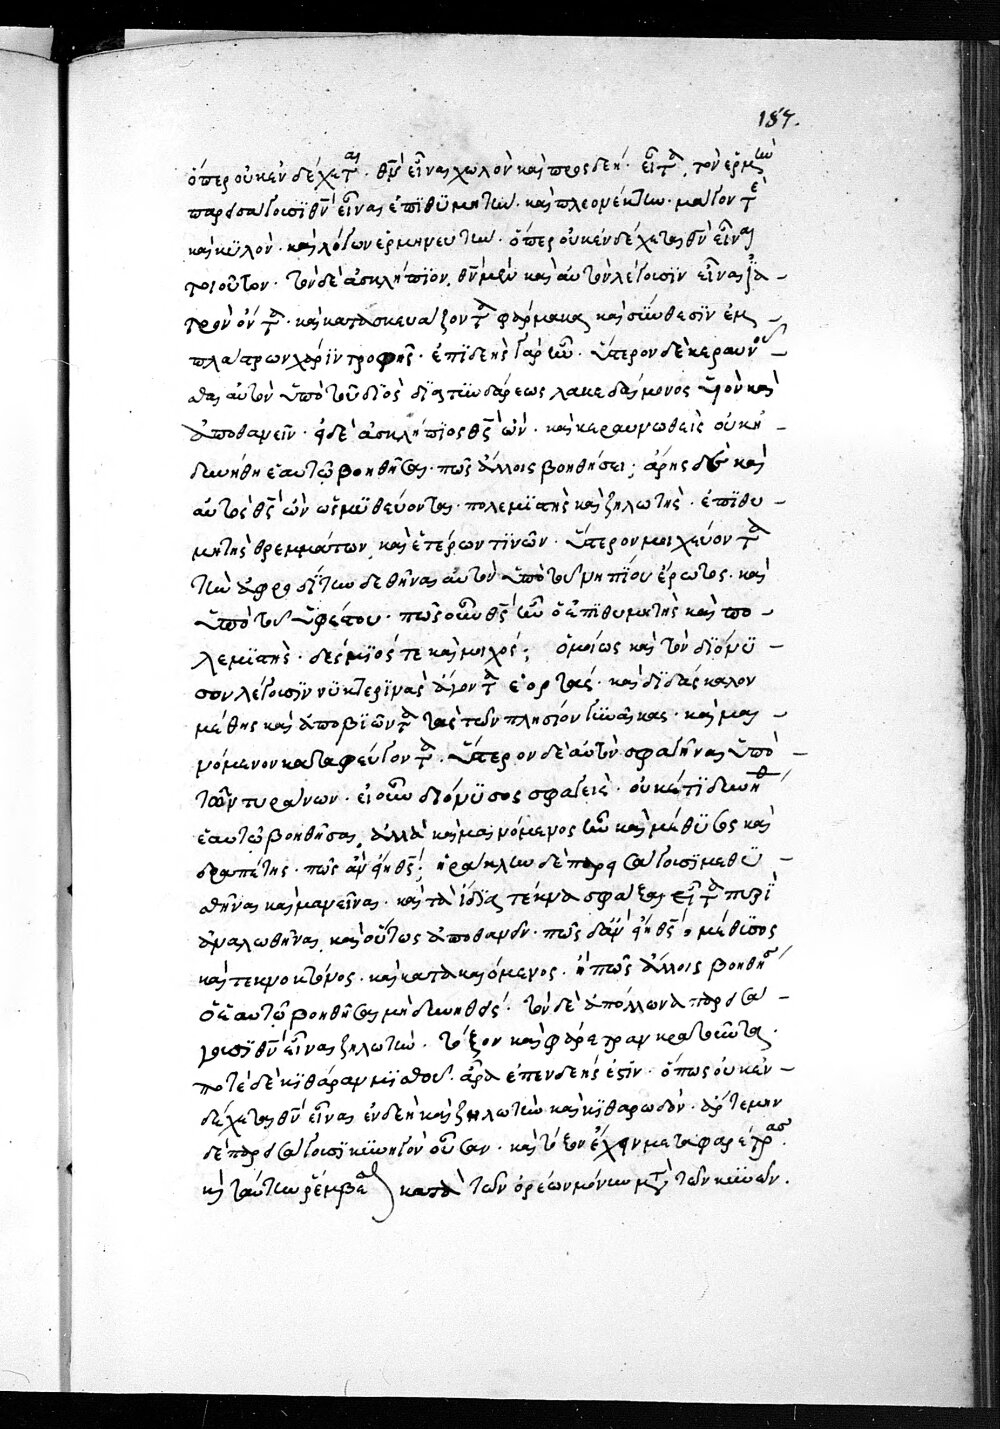 187.
ὅπερ οὐκ ἐνδέχεται θν̄ εἶναι χωλὸν καὶ προσδεῆ· εἶτα τὸν ἑρμῆν
παρεσάγουσϊ θν̄ εἶναι ἐπϊθϋμητὴν· καὶ πλεονέκτην· μάγον τε
καὶ κϋλὸν· καὶ λόγων ἑρμηνευτὴν· ὅπερ οὐκ ἐνδέχεται θν̄ εἶναι
τοιοῦτον· τὸν δὲ ἀσκληπϊὸν θν̄ μὲν καὶ αὐτὸν λέγουσϊν εἶναι ϊα
τρὸν ὄντα· καὶ κατασκευάζοντα φάρμακα καὶ σύνθεσϊν ἐμ
πλάστρων χάρϊν τροφῆς· ἐπϊδεὴς γάρ ἦν· ὕστερον δὲ κεραυνοῦ
σθαι αὐτὸν ὑπὸ τοῦ δϊὸς δϊὰ τϋνδάρεως λακεδαίμονος ὑϊὸν καὶ
ἀποθανεῖν· ὁ δὲ ἀσκληπϊὸς θς̄ ὢν· καὶ κεραυνωθεὶς οὐκ ἠ
δυνήθη ἑαυτῶ βοηθῆσαι· πῶς ἄλλοις βοηθήσει; ἄρης δὲ καὶ
αὐτὸς θς̄ ὢν ὡς μϋθεύονται· πολεμϊστὴς καὶ ζηλωτὴς· ἐπϊθυ
μητὴς θρεμμάτων καὶ ἑτέρων τϊνῶν· ὕστερον μοιχεύοντα
τὴν ἀφροδίτην δεθῆναι αὐτὸν ὑπὸ τοῦ νηπίου ἔρωτος· καὶ
ὑπὸ τοῦ ὑφέστου· πῶς οὖν θς̄ ἦν ὁ ἐπϊθυμητὴς καὶ πο
λεμϊστὴς· δέσμϊός τε καὶ μοιχός; ὁμοίως καὶ τὸν δϊόνϋ
σον λέγουσϊν νϋκτερϊνὰς ἄγοντα ἑορτὰς· καὶ δϊδάσκαλον
μέθης καὶ ἀποβϊῶντα τὰς τῶν πλησίον γυναῖκας· καὶ μαι
νόμενον καὶ καταφεύγοντα· ὕστερον δὲ αὐτὸν σφαγῆναι ὑπὸ
τῶν τυράνων· εἰ οὖν δϊόνϋσος σφαγεὶς· οὐκ ἔτϊ δυνηθ
ἑαυτῶ βοηθῆσαι ἀλλὰ καὶ μαϊνόμενος ἦν καὶ μέθϋσος καὶ
δραπέτης· πῶς ἂν εἴη θς̄; ἡρακλὴν δὲ παρεσάγουσϊ μεθϋ
σθῆναι καὶ μανεῖναι· καὶ τὰ ἴδϊα τέκνα σφάξαι εἶτα πυρϊ
ἀναλωθῆναι καὶ οὕτως ἀποθανεῖν· πῶς δ' ἂν εἴη θς̄ ὁ μέθϊσος
καὶ τεκνοκτόνος· καὶ κατακαιόμενος· ἢ πῶς ἄλλοις βοηθήσ
ὁ ἑαυτῶ βοηθῆσαι μὴ δυνηθείς· τὸν δὲ ἀπόλλωνα παρεσά
γουσϊ θν̄ εἶναι ζηλωτὴν· τόξον καὶ φάρετραν κρατοῦντα·
ποτὲ δὲ κϊθάραν μϊσθοῦ· ἄρα ἐπενδεής ἐστϊν· ὅπως οὐκ ἐν
δέχεται θν̄ εἶναι ἐνδεῆ καὶ ζηλωτὴν καὶ κϊθαρωδὸν· ἄρτεμην
δὲ παρεσάγουσϊ κϋνηγὸν οὖσαν· καὶ τόξον ἔχειν μετὰ φαρέτρας·
κὶ ταύτην ῥέμβεσθαι κατὰ τῶν ὀρέων μόνην μετὰ τῶν κυνῶν.